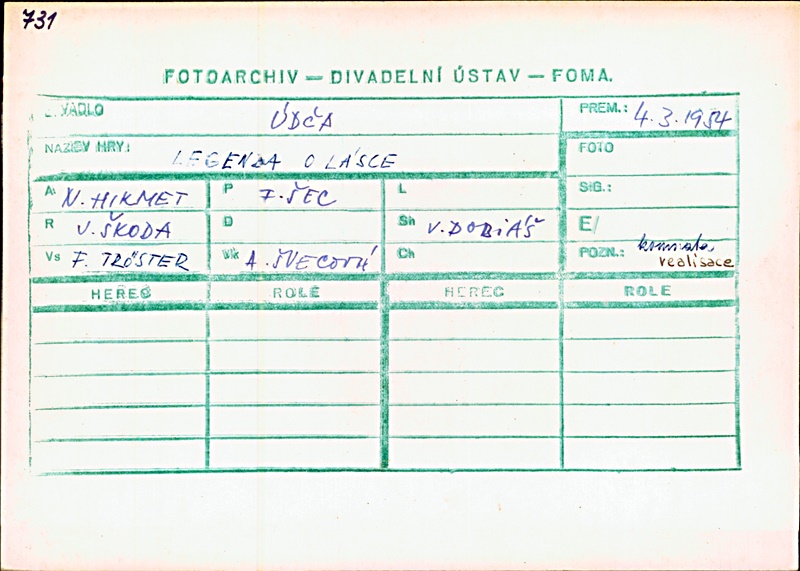 731
FOTOARCHIV — DIVADELNÍ ÚSTAV — FOMA.
DIVADLO ÚDČA PREM.: 4.3.1954
NÁZEV HRY: LEGENDA O LÁSCE FOTO
A N. HIKMET P F. ŠEC L SIG.:
R V. ŠKODA D Sh V. DOBIÁŠ E/
Vs F. TRÖSTER Vk A. ŠVECOVÁ Ch POZN.:
realisace
HEREC ROLE HEREC ROLE